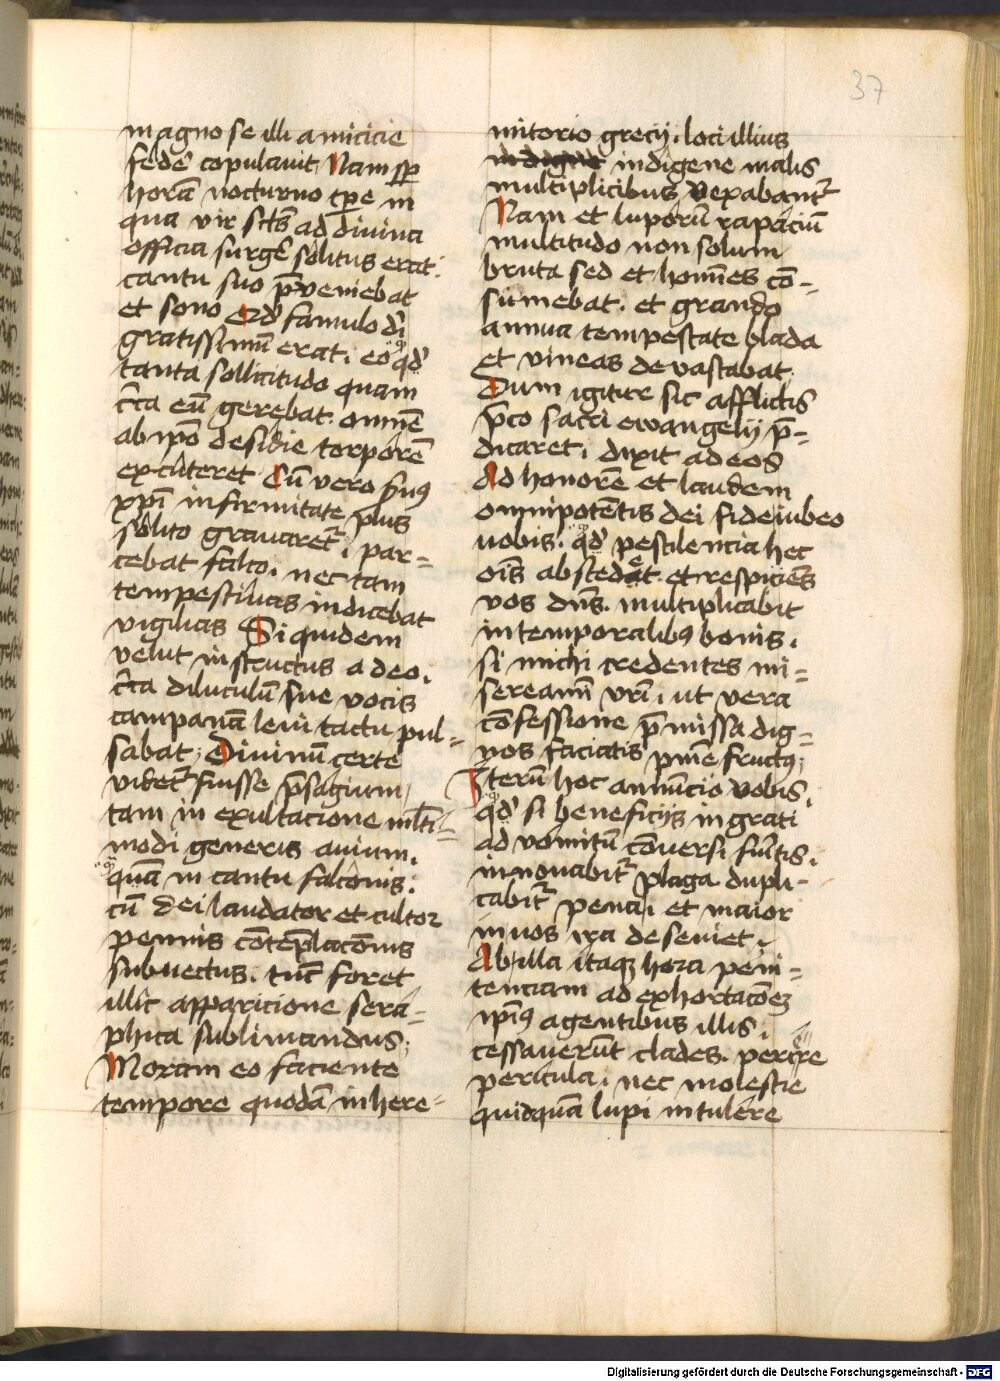 37
magno se illi amicicie
fede᷑ copulauit Nam sp̲
horā nocturno tp̲e in
qua vir sctꝰ ad diuina
officia surge᷑ solitus erat.
cantu suo p̄veniebat
et sono Qd̓ famulo di̅
gratissimū erat. eo qd̓
tanta sollicitudo quam
c̓ca eū gerebat. omnē
ab ip̄o desidie torporē
excuteret Cū vero s̓uꝰ
xpi̅ infirmitate plus
solito grauaret᷑. par=
cebat falco. nec tam
tempestiuas indicebat
vigilias Siquidem
velut instructus a deo.
c̓ca diluculū sue vocis
campanā leui tactu pul=
sabat. Diuinū certe
videt᷑ fuisse p̄sagium
tam in exultacione ml̅ti=
modi generis auium.
quā in cantu falconis.
cū dei laudator et cultor
pennis cōtēplacōnis
subuectus. tūc foret
illic apparicione sera=
phica sublimandus.
Moram eo faciente
tempore quodā in here=
mitorio grecij. loci illius
indigene malis
multiplicibus vexabant᷑
Nam et luporū rapaciū
multitudo non solum
bruta sed et homīes cō=
sumebat. et grando
annua tempestate blada
et vineas deuastabat.
Dum igitur sic afflictis
p̄co sacri ewangelij p̄=
dicaret. dixit ad eos
Ad honorē et laudem
omnipotētis dei fideiubeo
vobis. qd̓ pestilencia hec
oīs abscedet. et respiciēs
vos dn̄s. multiplicabit
in temporalibꝰ bonis.
si michi credentes mi=
sereamī vr̄i. ut vera
cōfessione p̄missa dig=
nos faciatis pn̄ie fructꝰ.
Iterū hoc annūcio vobis.
qd̓ si beneficijs ingrati
ad vomitū cōuersi fu̓itis.
innouabit᷑ plaga. dupli=
cabit᷑ pena. et maior
in uos ira deseuiet.
Ab illa itaqꝫ hora peni=
tenciam ad exhortacōeꝫ
ip̄iꝰ agentibus illis.
cessauerūt clades. periere
pericula. nec molestie
quidquā lupi intulere
Digitalisierung gefördert durch die Deutsche Forschungsgemeinschaft - DFG